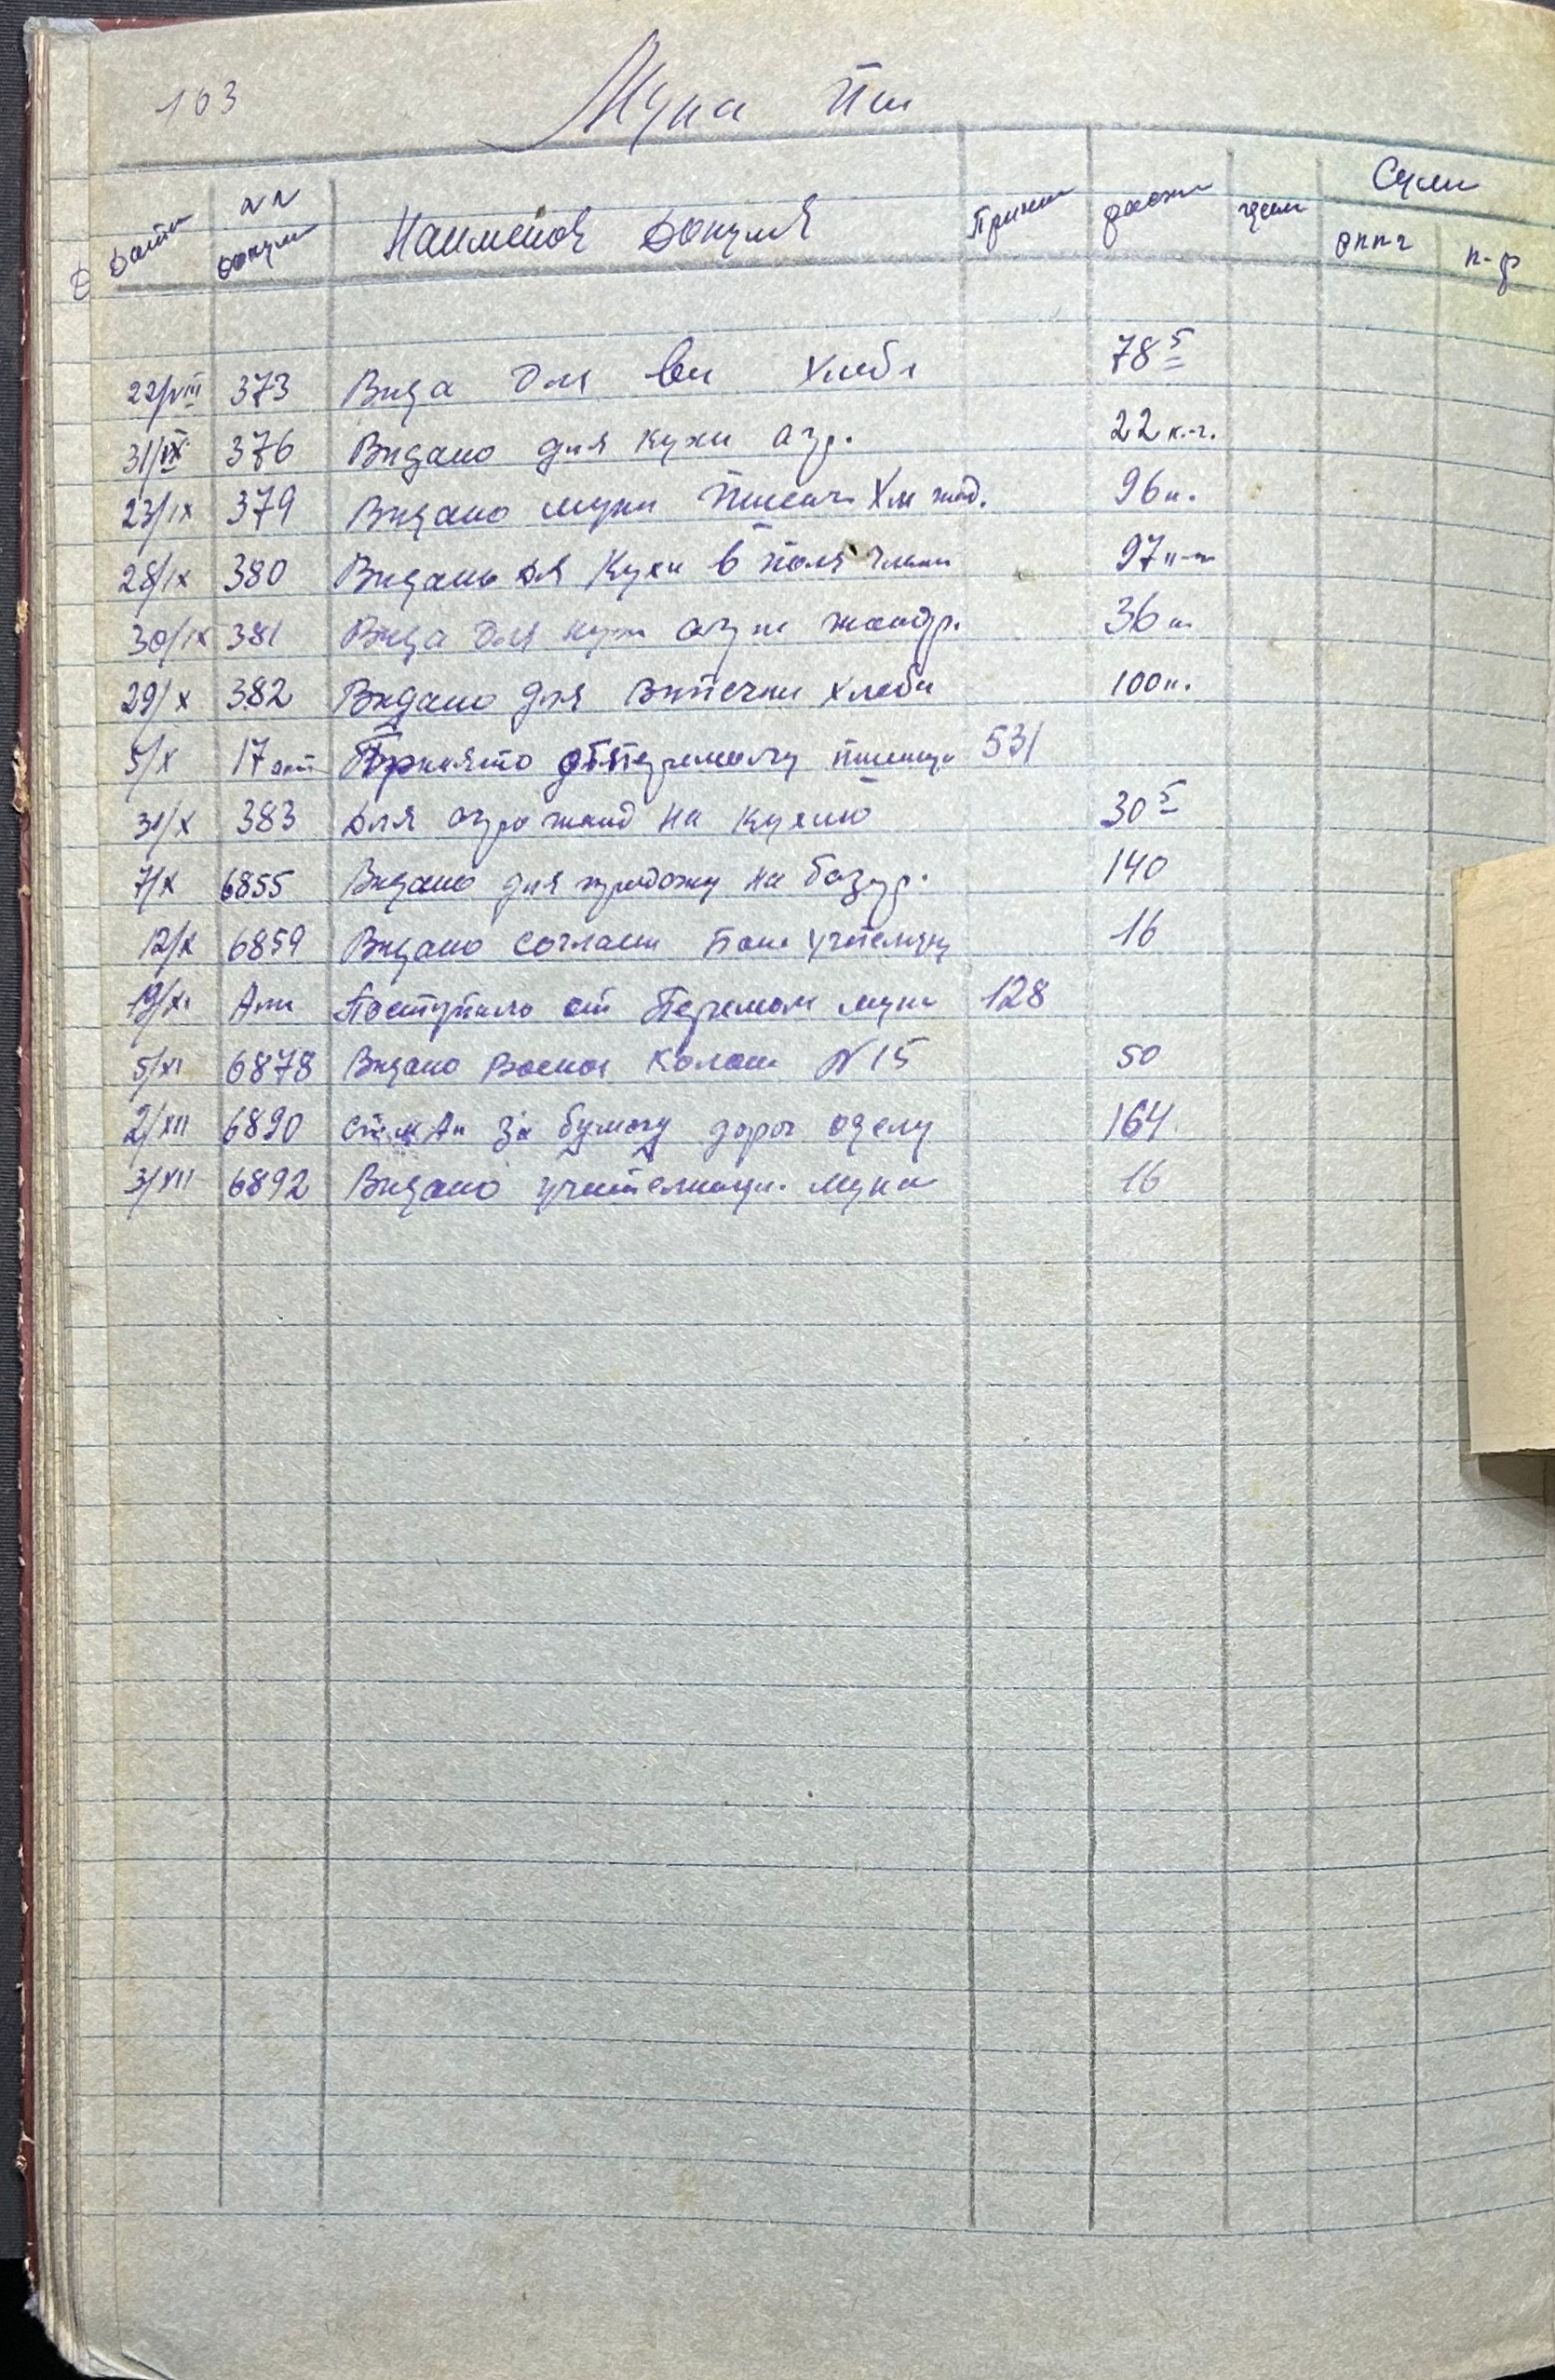 103 Мука Пш
Дата
NN докум
Наименов докумен
Приход расход цена
Сумм
прих р-д
22/VIII 373 Выда для вы хлеба 78 5
31/IX 376 Видано для кухн агр. 22 к.г.
23/IX 379 Видано муки пшенич Хл жад. 96 к.
28/IX 380 Видань дя Кухн в поля член 97 к-г
30/IX 381 Выда для кухн агрн жандр. 36 к.
29/X 382 Видано для выпечки хлеба 100 к.
5/X 17 акт Прынято от перемолу пшеницы 531
31/X 383 Для агро жанд на кухню 30 5
7/X 6855 Видано для продажу на базар. 140
12/X 6859 Видано согласн учителям 16
19/XI Акт Поступило от Перемол муки 128
5/XI 6878 Видано Колон N 15 50
2/XII 6890 за бумагу 164
3/XII 6892 Видано учительниц. мука 16